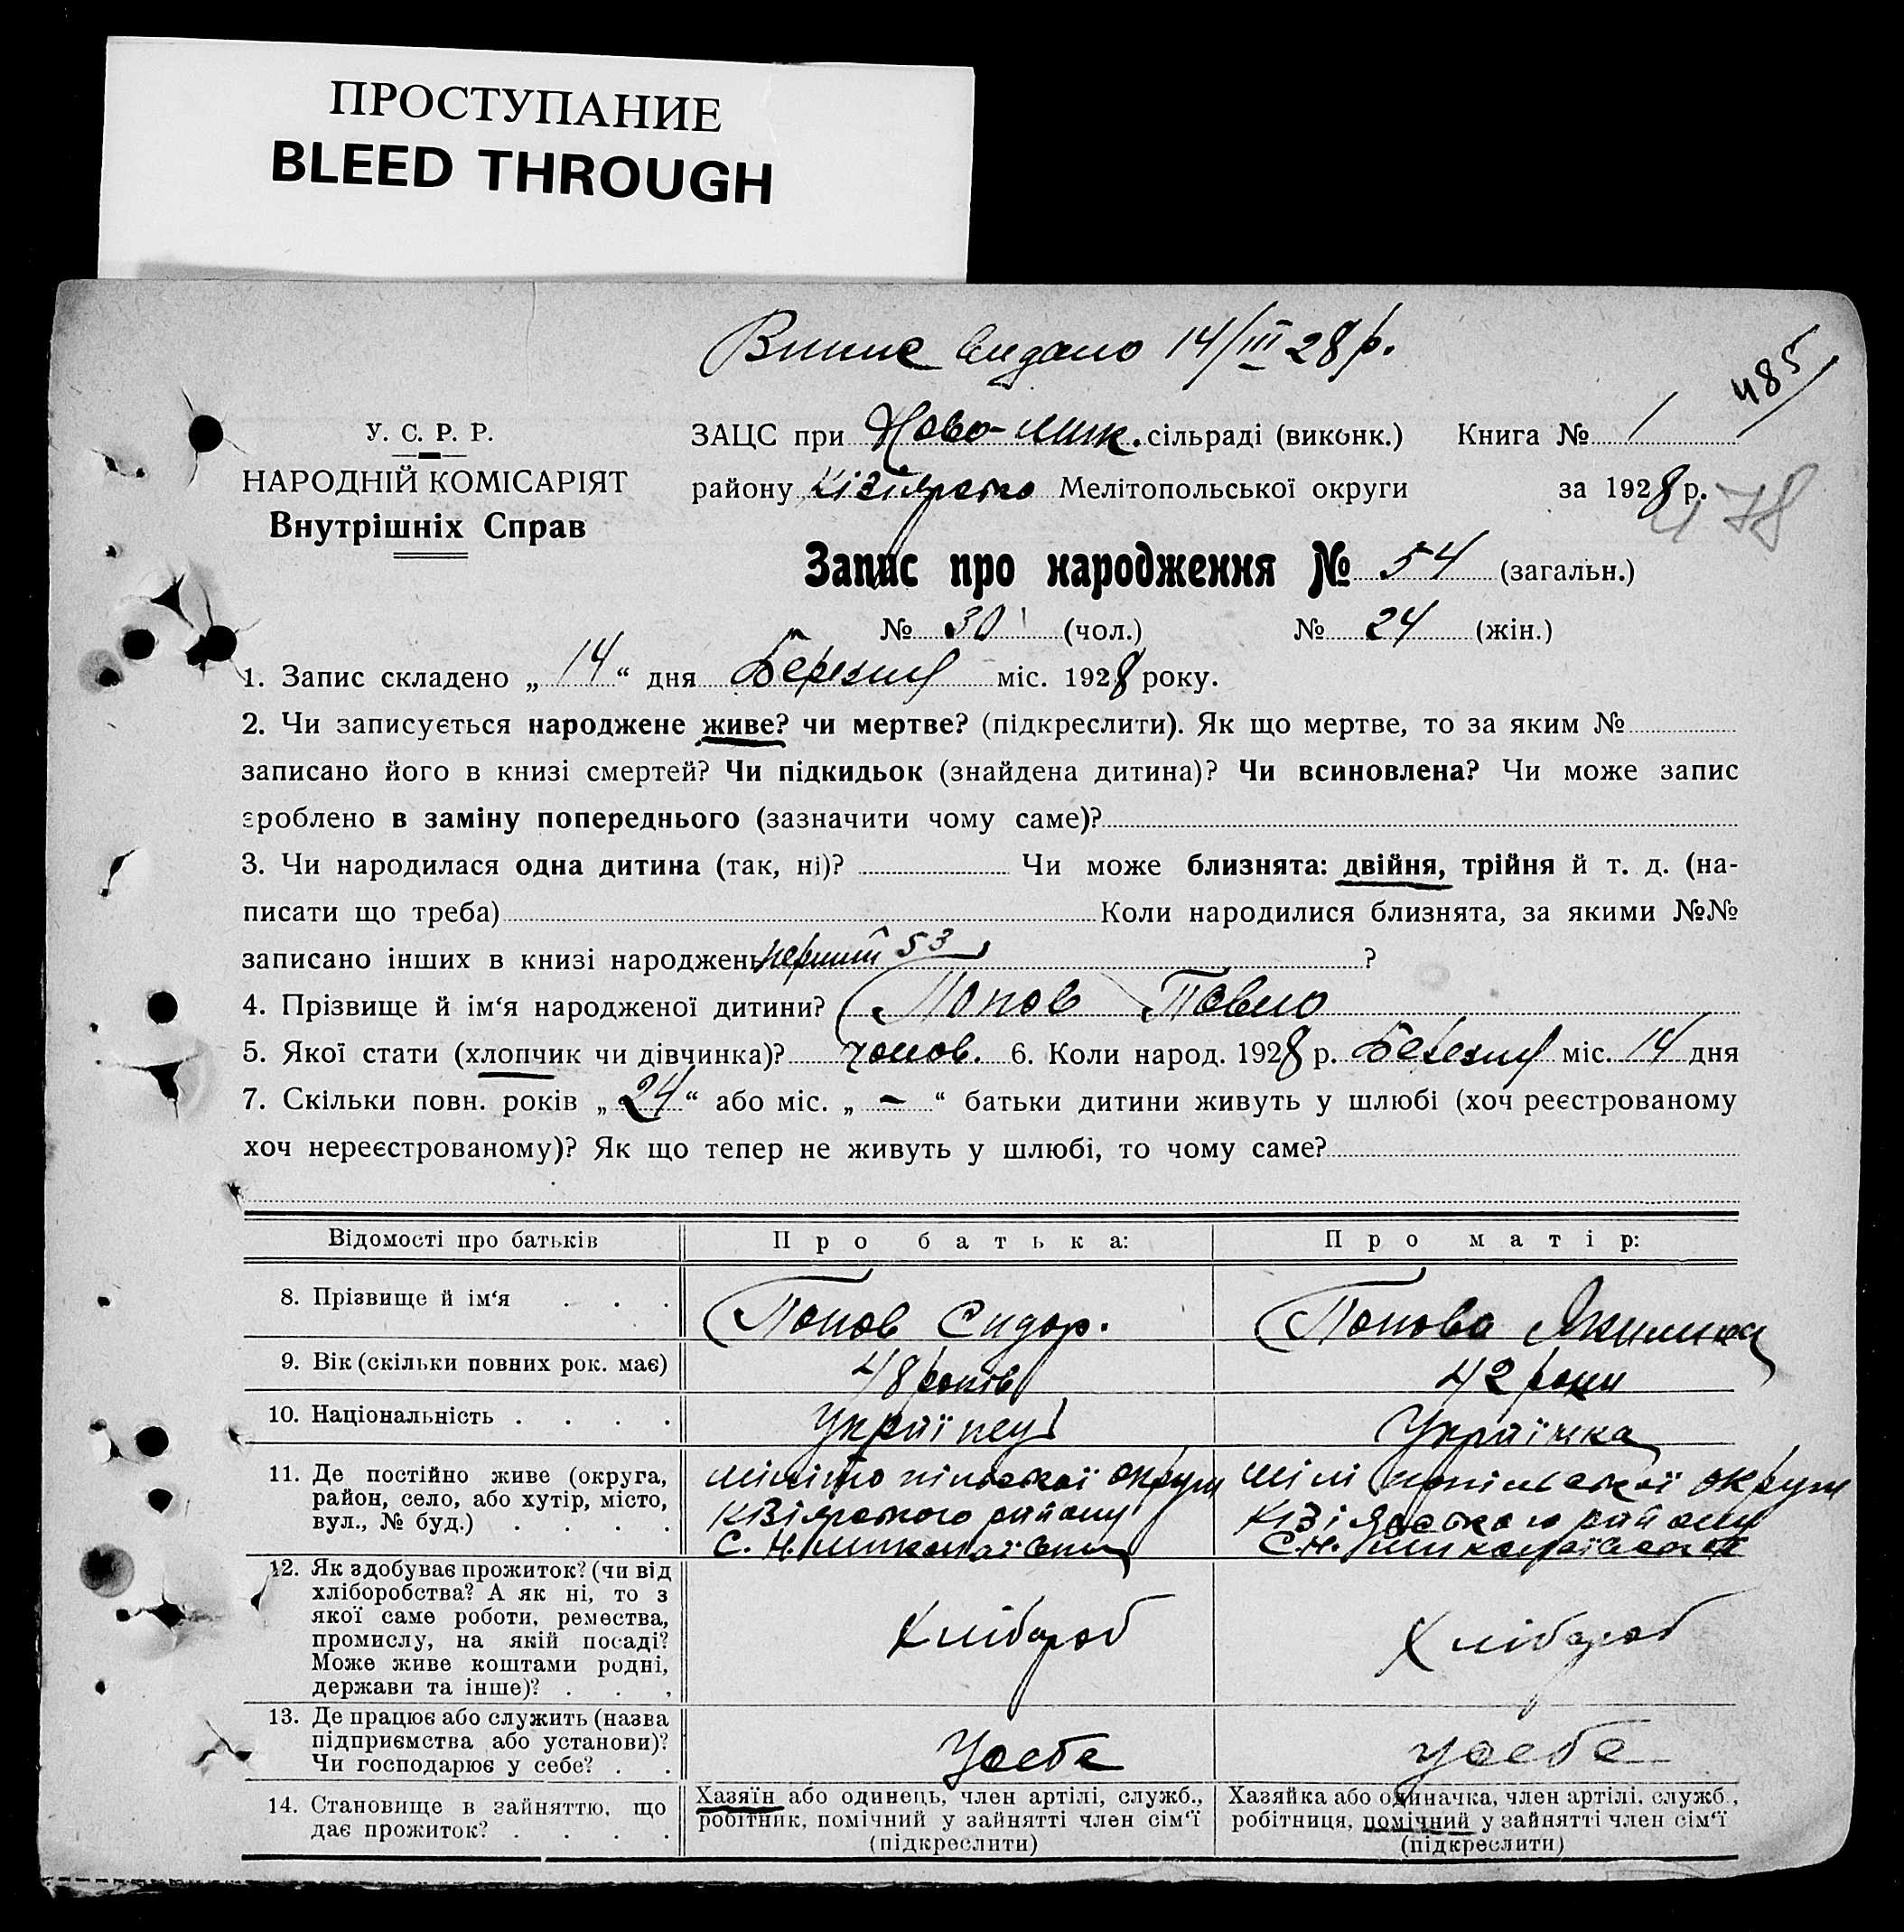 ПРОСТУПАНИЕ
BLEED THROUGH
Випис видано 14/III 28 р.
485
У. С. Р. Р.
НАРОДНІЙ КОМІСАРІЯТ
Внутрішніх Справ
ЗАЦС при Ново-Мик. сільраді (виконк.) Книга № 1
району Кізіярсько Мелітопольської округи за 1928 р.
478
Запис про народження № 54 (загальн.)
№ 30 (чол.) № 24 (жін.)
1. Запис складено „ 14 “ дня Березня міс. 1928 року.
2. Чи записується народжене живе? чи мертве? (підкреслити). Як що мертве, то за яким №
записано його в книзі смертей? Чи підкидьок (знайдена дитина)? Чи всиновлена? Чи може запис
зроблено в заміну попереднього (зазначити чому саме)?
3. Чи народилася одна дитина (так, ні)? Чи може близнята: двійня, трійня й т. д. (на-
писати що треба) Коли народилися близнята, за якими №№
записано інших в книзі народжень перший 53 ?
4. Прізвище й ім‘я народженої дитини? Попов Павло
5. Якої стати (хлопчик чи дівчинка)? чолов. 6. Коли народ. 1928 р. Березня міс. 14 дня
7. Скільки повн. років „ 24 “ або міс. „ — “ батьки дитини живуть у шлюбі (хоч реєстрованому
хоч нереєстрованому)? Як що тепер не живуть у шлюбі, то чому саме?
Відомості про батьків Про батька: Про матір:
8. Прізвище й ім‘я . . . Попов Сидор. Попова Якилина
9. Вік (скільки повних рок. має) 48 років 42 роки
10. Національність . . . . Українец Українка
11. Де постійно живе (округа,
район, село, або хутір, місто,
вул., № буд.) . . . .
Мілітопільської округи
Кізіярського району
С. Н. Миколаївки
Мілітопільської округи
Кізіярського району
С. Н. Миколаївки
12. Як здобуває прожиток? (чи від
хліборобства? А як ні, то з
якої саме роботи, ремества,
промислу, на якій посаді?
Може живе коштами родні,
держави та інше)? . . .
Хлібороб
Хлібороб
13. Де працює або служить (назва
підприємства або установи)?
Чи господарює у себе? . .
У себе
У себе
14. Становище в зайняттю, що
дає прожиток? . . . .
Хазяїн або одинець, член артілі, служб.,
робітник, помічний у зайнятті член сім‘ї
(підкреслити)
Хазяйка або одиначка, член артілі, служб.,
робітниця, помічний у зайнятті член сім‘ї
(підкреслити)